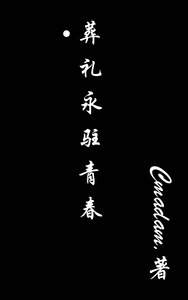 葬礼永驻青春
Cmadam.著